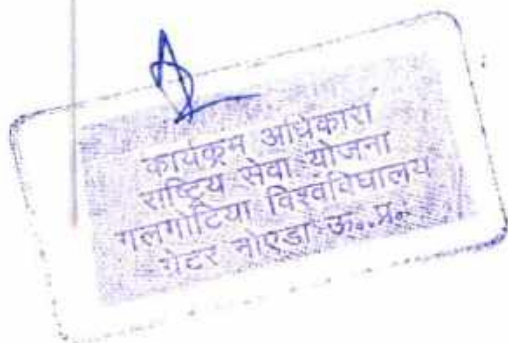 कार्यक्रम अधिकारी
राष्ट्रिय सेवा योजना
गलगोटिया विश्वविघालय
ग्रेटर नोएडा ऊ..प्र..